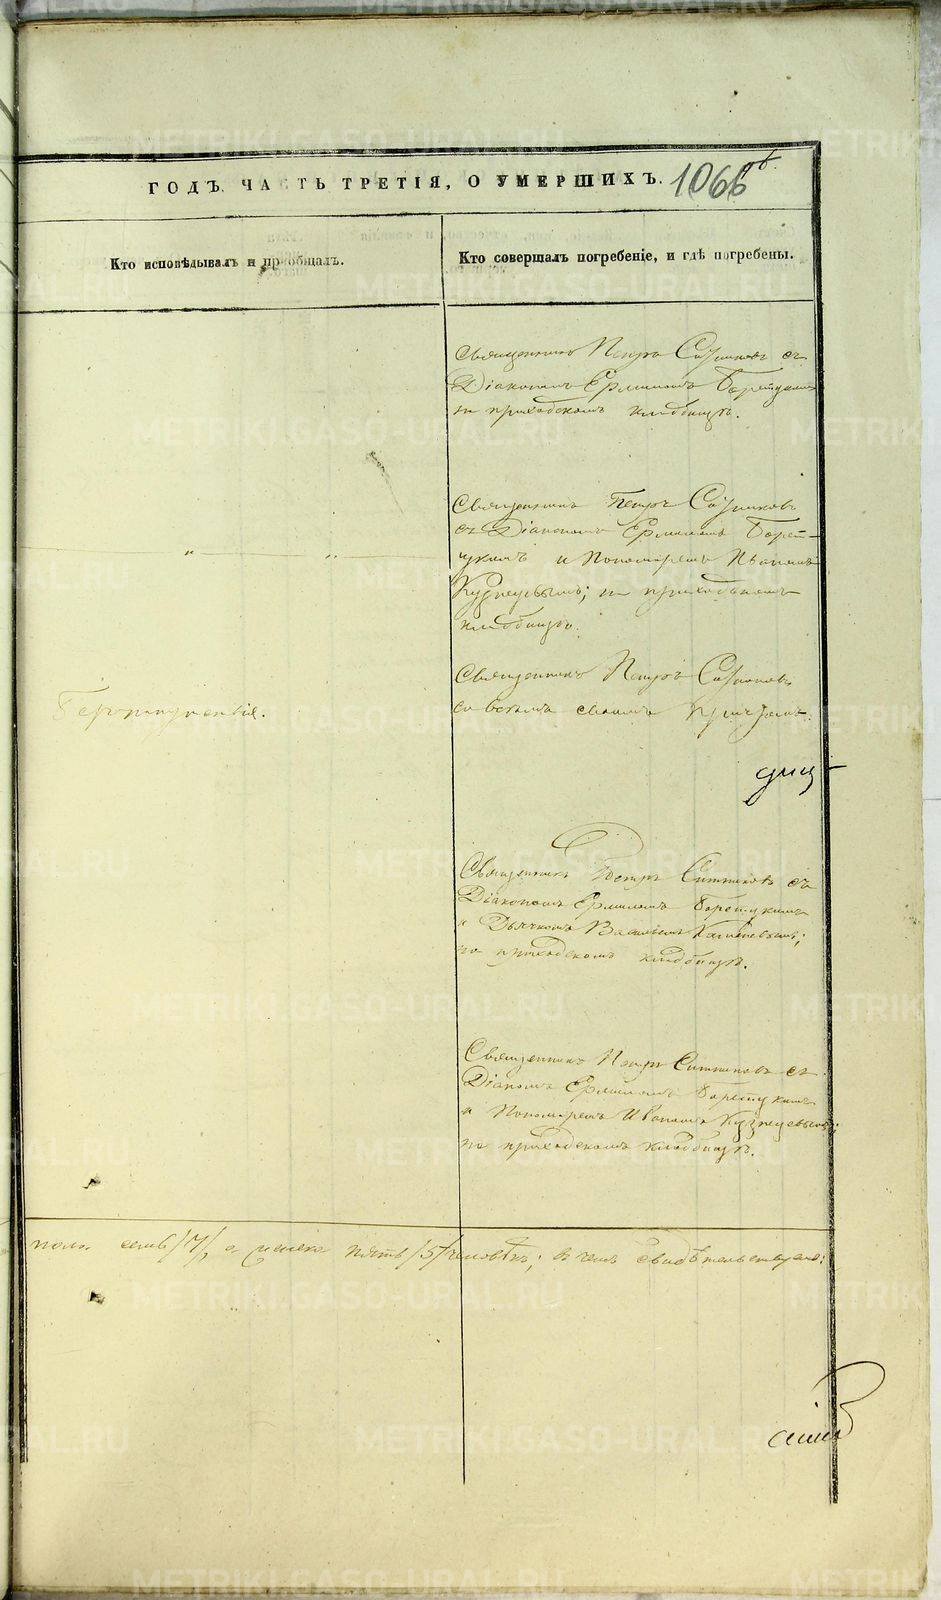 ГОДЪ, ЧАСТЬ ТРЕТІЯ, О УМЕРШИХЪ. 1066 об.
Кто исповѣдывалъ и пріобщалъ.
Кто совершалъ погребеніе, и гдѣ погребены.
Священникъ Петръ Ситниковъ съ
Діакономъ Ермиломъ
на приходскомъ кладбищѣ.
Священникъ Петръ Ситниковъ
съ Діакономъ Ермиломъ
и Пономаремъ Иваномъ
Кузнецовымъ; на приходскомъ
кладбищѣ.
Священникъ Петръ Ситниковъ
со всемъ своимъ причтомъ.
Священникъ Петръ Ситниковъ съ
Діакономъ Ермиломъ
и Дьячкомъ Василіемъ
на приходскомъ кладбищѣ.
Священникъ Петръ Ситниковъ съ
Діакономъ Ермиломъ
и Пономаремъ Иваномъ Кузнецовымъ;
на приходскомъ кладбищѣ.
пола семь /7/, а женска пять /5/ человѣкъ; въ чемъ свидѣтельствуемъ:
METRIKI.GASO-URAL.RU